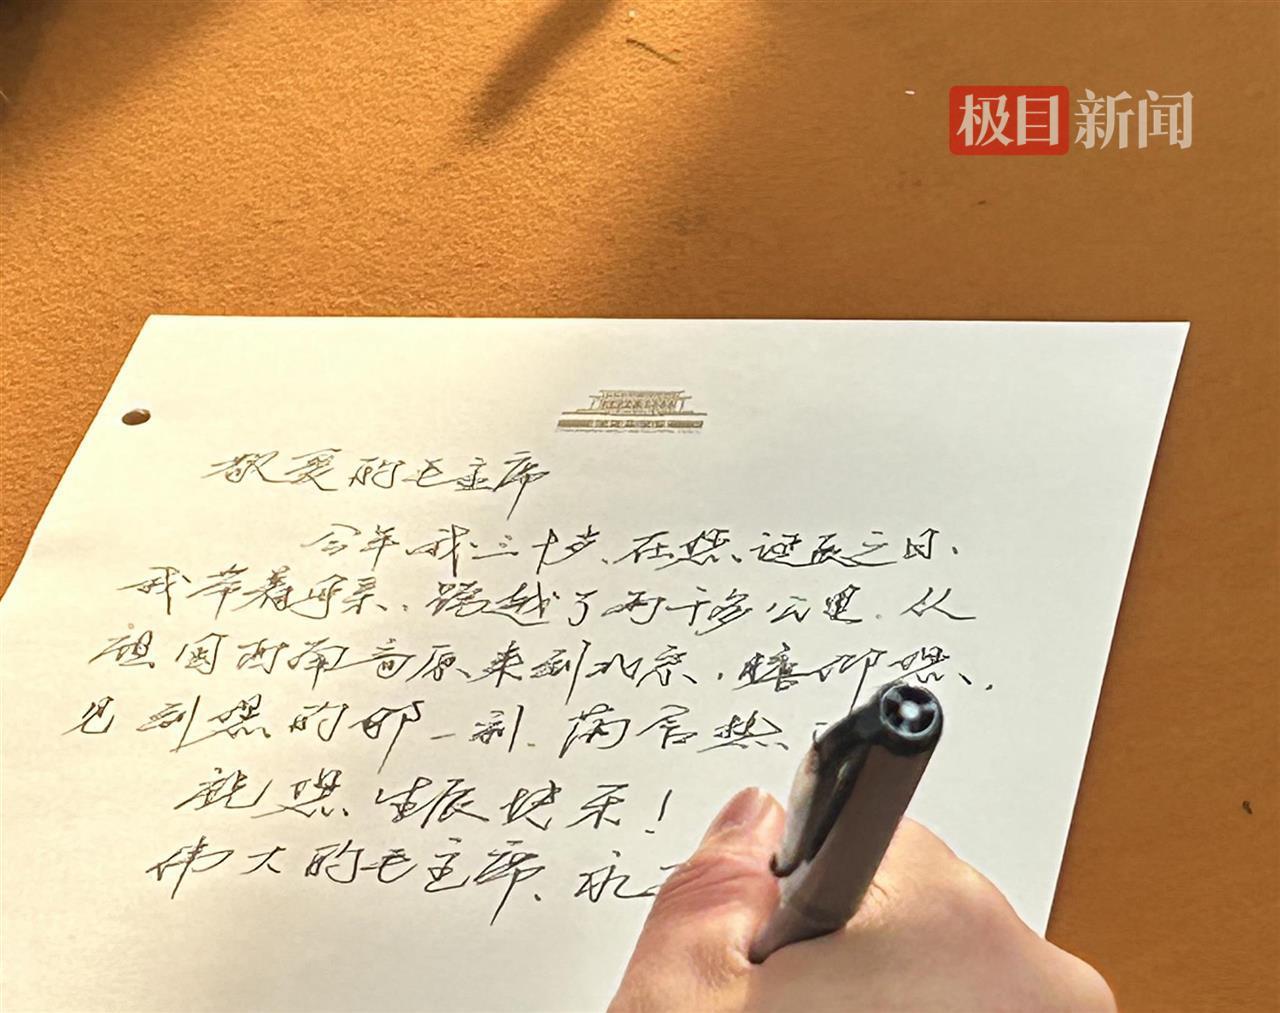 极目新闻
敬爱的毛主席
今年我三十岁、在您诞辰之日、
我带着母亲、跨越了两千多公里、从
祖国西南高原来到北京、瞻仰您、
见到您的那一刻、满眉热
祝您生辰快乐!
伟大的毛主席、永